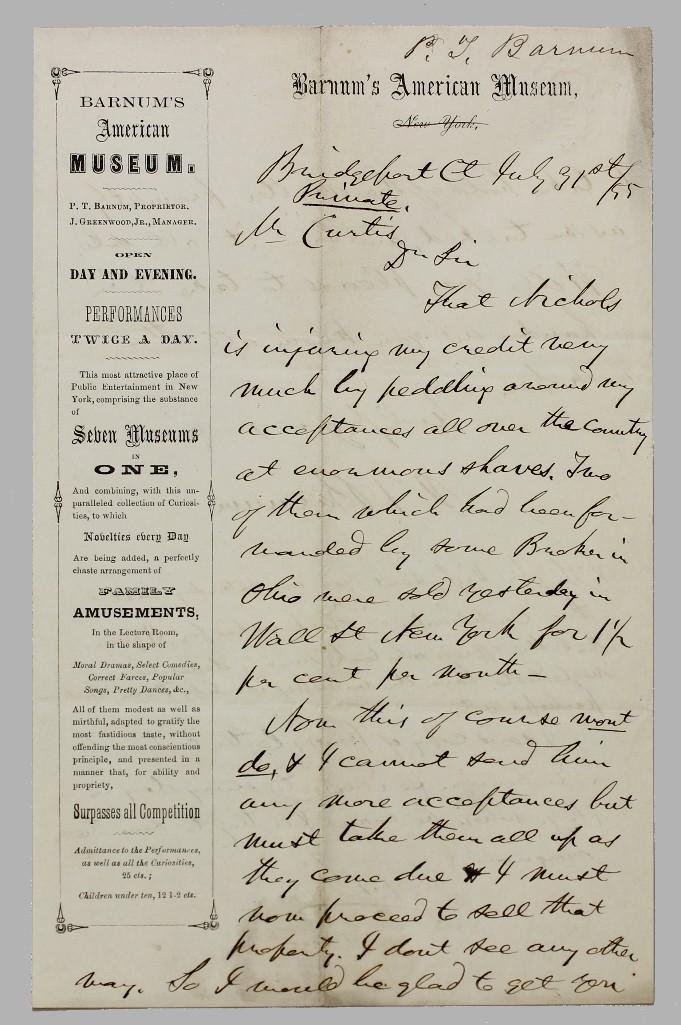 P. T. Barnum
Barnum's American Museum,
New York.
Bridgeport Ct July 31st/55
Private.
Mr Curtis
Dr Sir
That Nichols
is injuring my credit very
much by peddling around my
acceptances all over the country
at enormous shaves. Two
of them which had been for-
warded by some Broker in
Ohio were sold yesterday in
Wall St New York for 1 1/2
per cent per month -
Now this of course wont
do, & I cannot send him
any more acceptances but
must take them all up as
they come due & I must
now proceed to sell that
property. I dont see any other
way. So I would be glad to get you
BARNUM'S
American
MUSEUM.
P. T. BARNUM, PROPRIETOR.
J. GREENWOOD, JR., MANAGER.
OPEN
DAY AND EVENING.
PERFORMANCES
TWICE A DAY.
This most attractive place of
Public Entertainment in New
York, comprising the substance
of
Seven Museums
IN
ONE,
And combining, with this un-
paralleled collection of Curiosi-
ties, to which
Novelties every Day
Are being added, a perfectly
chaste arrangement of
FAMILY
AMUSEMENTS,
In the Lecture Room,
in the shape of
Moral Dramas, Select Comedies,
Correct Farces, Popular
Songs, Pretty Dances, &c.,
All of them modest as well as
mirthful, adapted to gratify the
most fastidious taste, without
offending the most conscientious
principle, and presented in a
manner that, for ability and
propriety,
Surpasses all Competition
Admittance to the Performances,
as well as all the Curiosities,
25 cts.;
Children under ten, 12 1-2 cts.